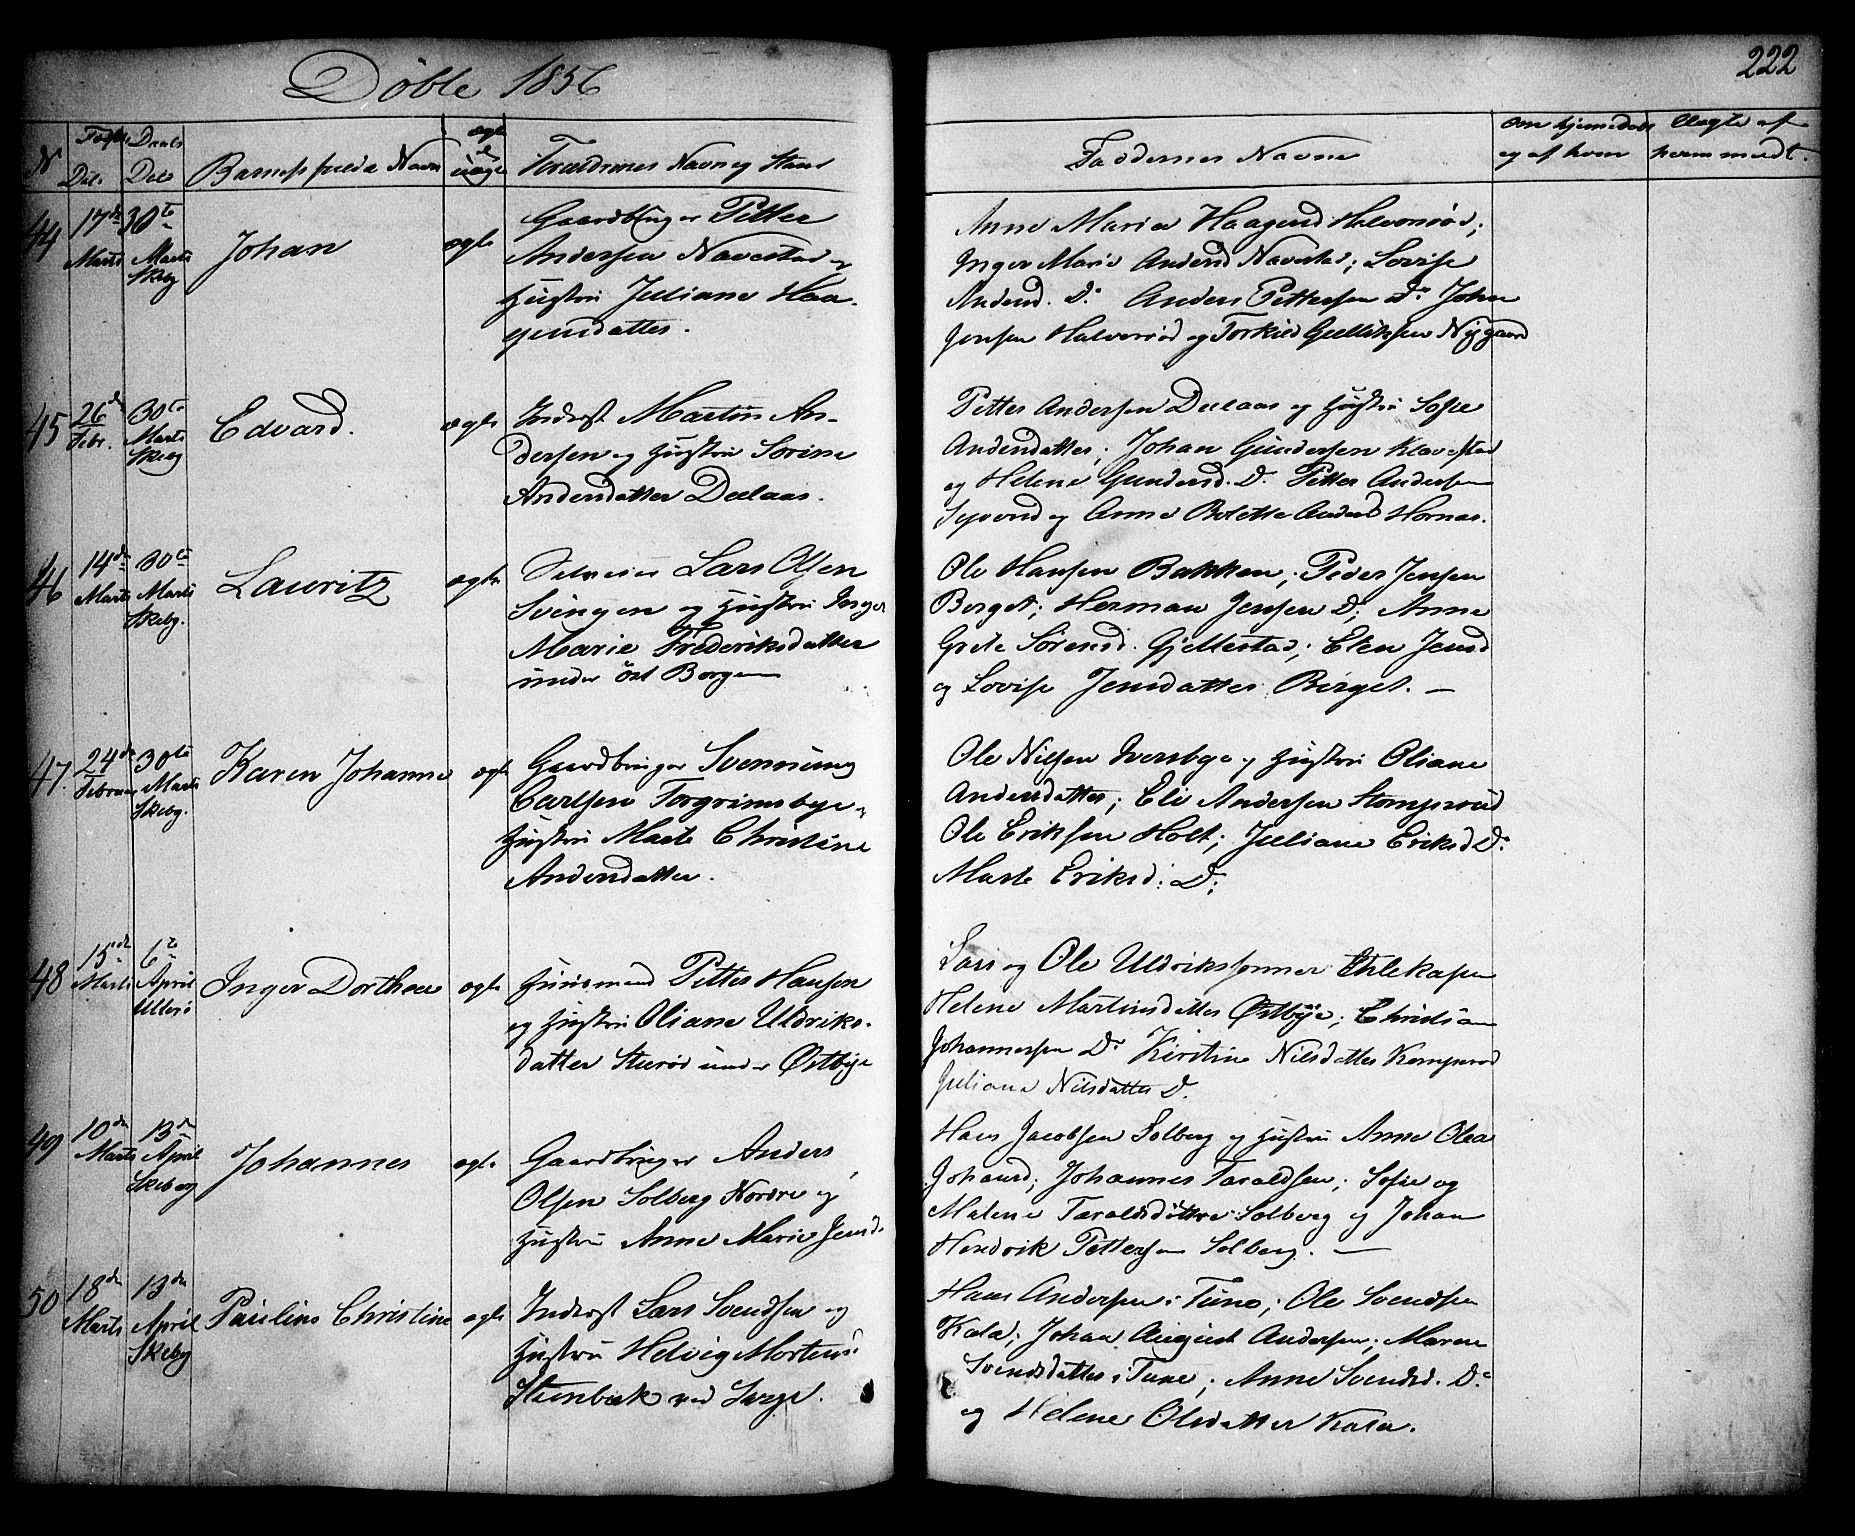 Döbte 1856
222
N
Føds. Del.
Daabs Dels
Barnets fulde Navn
ægte el uægte
Forældrenes Navn og Stand
Faddernes Navne
om hjemmedøbt og af hvem
Vagte af hvem meldt.
44
17de Marts
30te Marts Skebg
Johan
ægte
Gaardbruger Petter
Andersen Navestad og
Hustru Juliane Haa-
gensdatter.
Anne Maria Haagensd Halvorsrød;
Inger Marie Andersd Navestad; Lovise
Andersd. Do. Anders Pettersen Do. John
Jensen Halvorsrød og Torkild Gulliksen Nygaard
45
26de Febr.
30te Marts Skebg
Edvard.
ægte
Inderst Martin An-
dersen og Hustru Sorine
Andersdatter Deelaas.
Petter Andersen Deelaas og Hustru Sofie
Andersdatter; Johan Gundersen Klavestad
og Helene Gundersd. Do. Petter Andersen
og Anne Bolette Andersd Hornæs.
46
14de Marts
30te Marts Skebg.
Lauritz
ægte
Lars Olsen
Svingen og Hustru Inger
Marie Frederiksdatter
under öst Borgen
Ole Hansen Bakken; Peder Jensen
Berget; Herman Jensen Do; Anne
Grete Sørensd. Gjellestad; Elen Jensd
og Lovise Jensdatter Berget. —
47.
24de Februar
30te Marts Skebg.
Karen Johanne
ægte
Gaardbruger Svenning
Carlsen Torgrimsbye og
Hustru Marte Christine
Andersdatter.
Ole Nilsen Iversbye og Hustru Oliane
Andersdatter; Eli Andersen Stomperud
Ole Eriksen Holt; Juliane Eriksd Do.
Marte Eriksd: Do;
48
15de Marts
6te April Ullerö
Inger Dorthea
ægte
Huusmand Petter Hansen
og Hustru Oliane Uldriks-
datter Sturød under Østbye
Lars og Ole Uldrikssønner
Helene Martinsdatter Østbye; Christian
Johannesen Do Kirstine Nilsdatter Kamperød
Juliane Nilsdatter Do.
49
10de Marts
13de April Skebg
Johannes
ægte
Gaardbruger Anders
Olsen Solberg Nordre og
Hustru Anne Marie Jensd.
Hans Jacobsen Solberg og Hustru Anne Olea
Johansd; Johannes Taraldsen; Sofie og
Malene Taraldsdøttre Solberg og Johan
Hendrik Pettersen Solberg. —
50
18de Marts
13de April Skebg
Pauline Christine
ægte
Inderst Lars Svendsen og
Hustru Helvig Mortensd
Steenbæk ved Sarps.
Hans Andersen i Tune; Ole Svendsen
Kala; Johan August Andersen; Maren
Svendsdatter i Tune; Anne Svendsd. Do.
og Helene Olsdatter Kala.